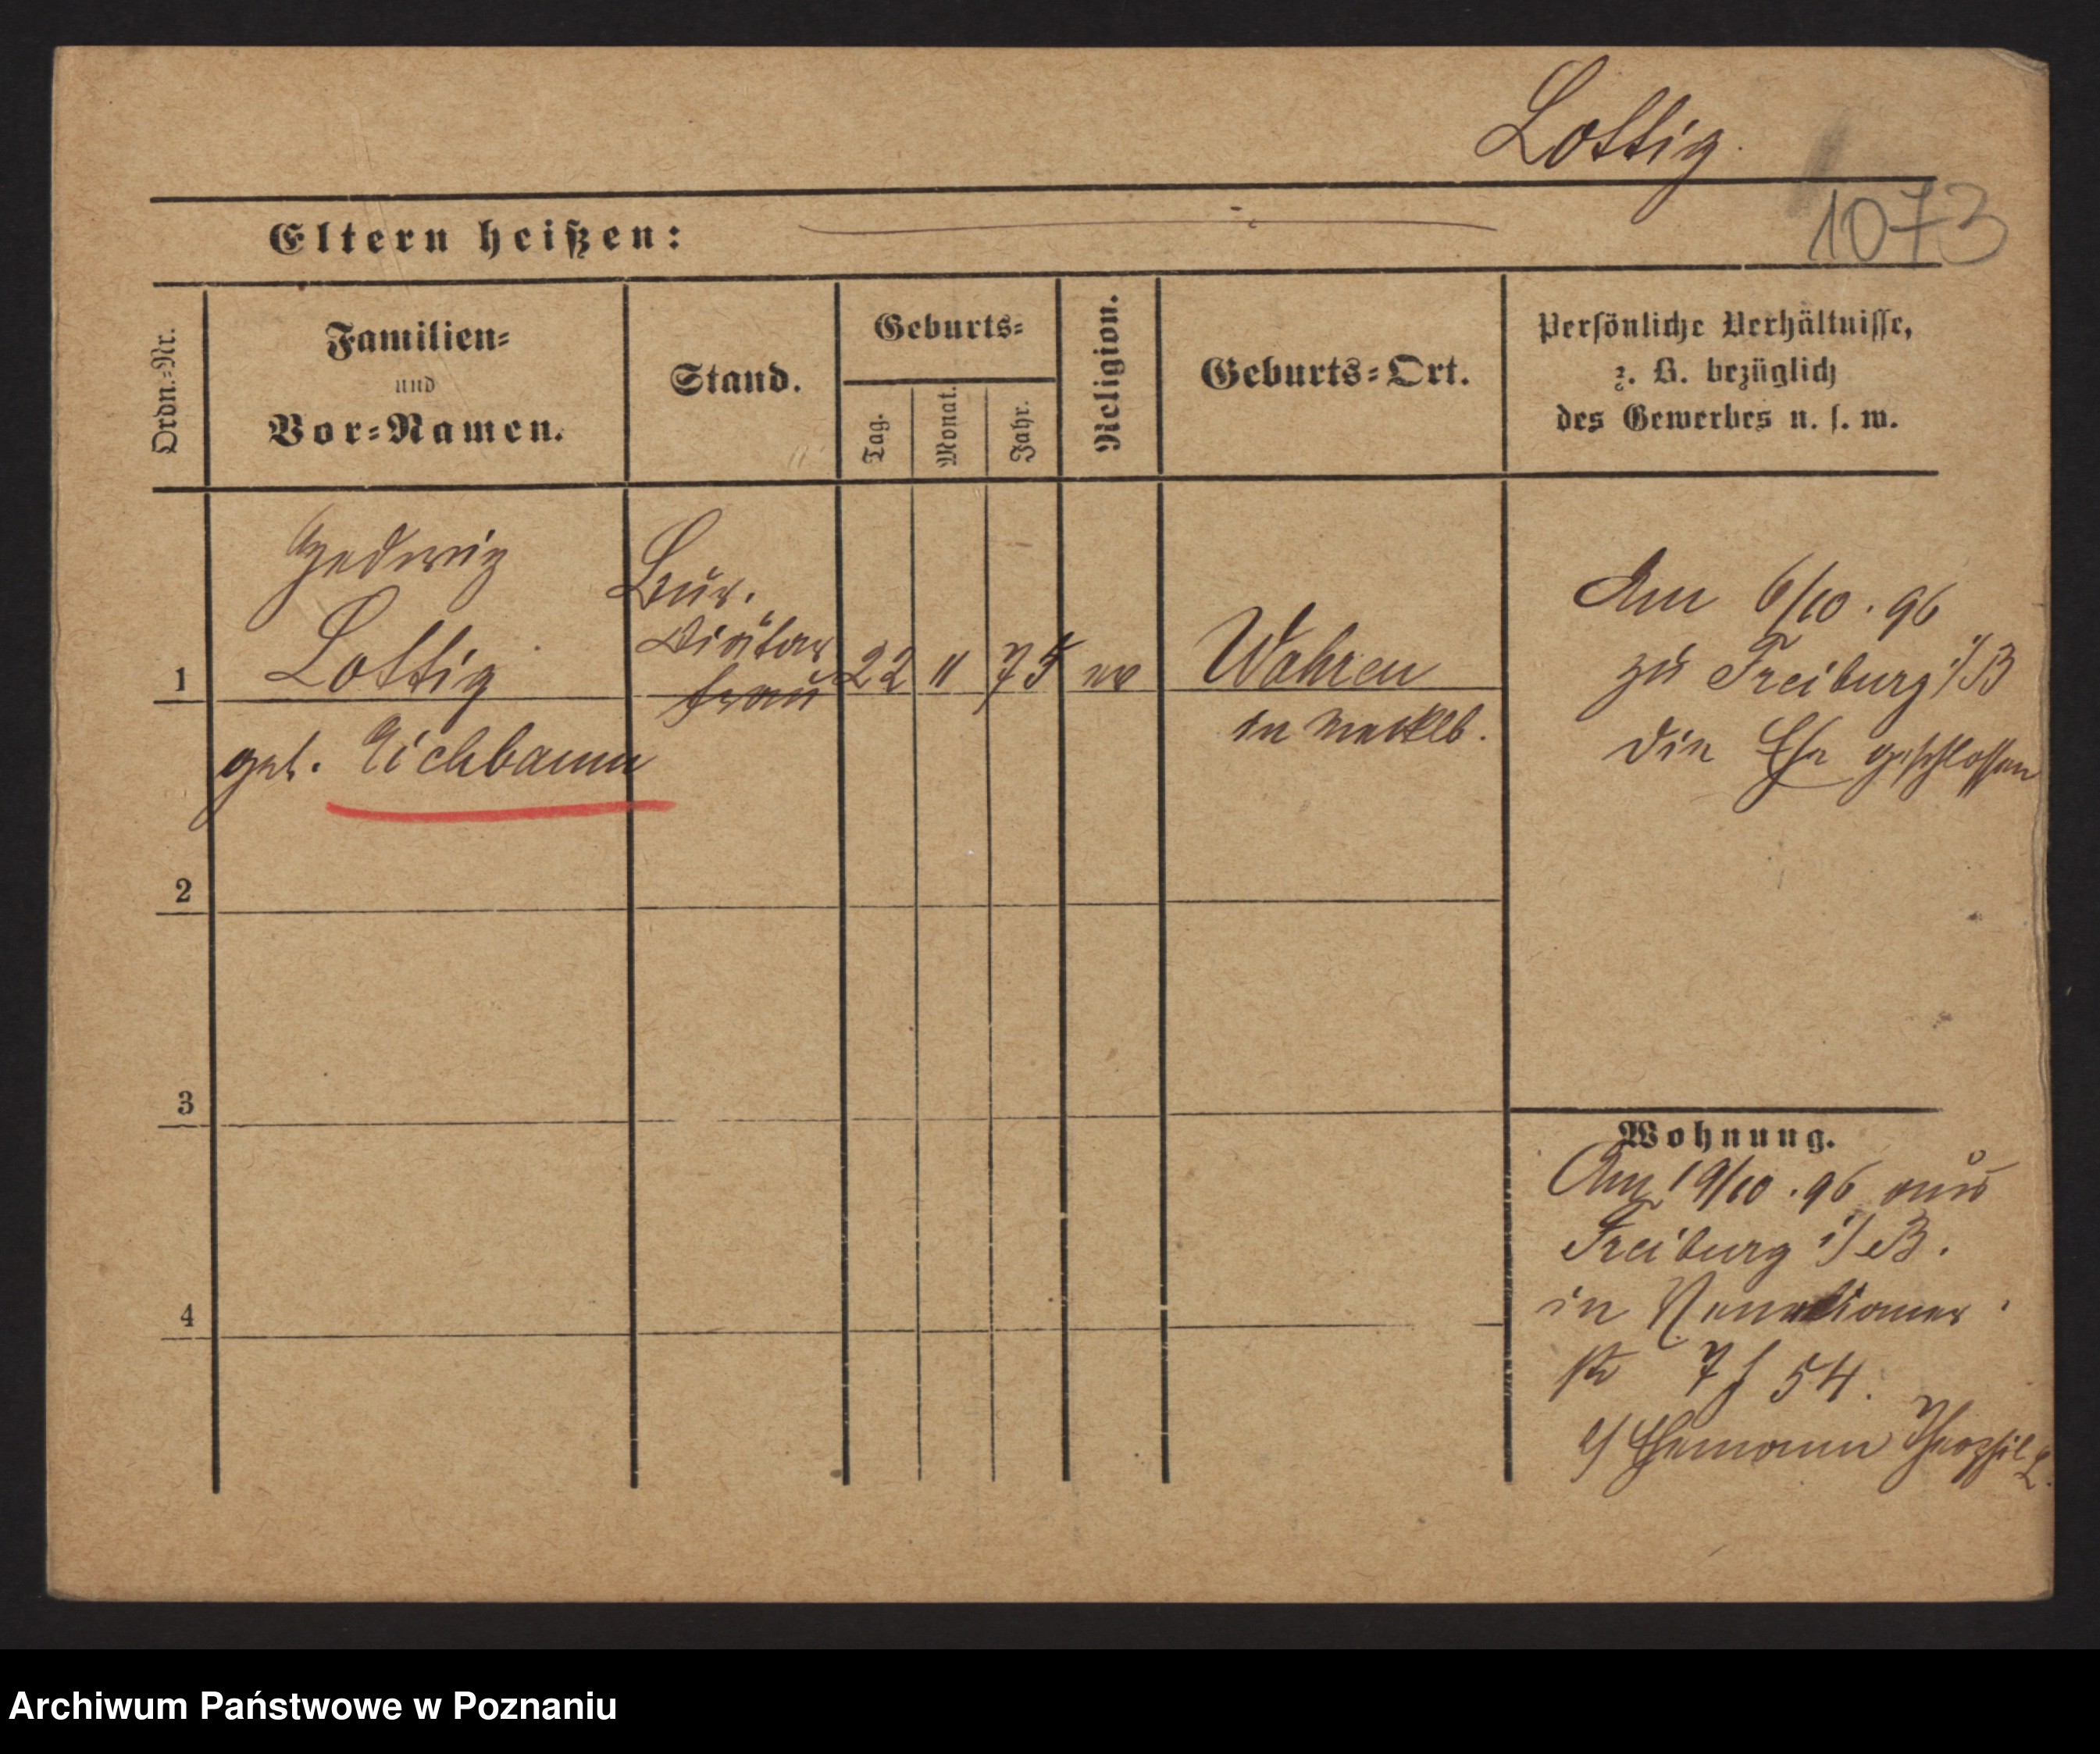 Lottig.
1073
Eltern heißen:
Ordn.-Nr.
Familien-
und
Vor-Namen.
Stand.
Geburts-
Tag.
Monat.
Jahr.
Religion.
Geburts-Ort.
Persönliche Verhältnisse,
z. B. bezüglich
des Gewerbes u. s. w.
1
Hedwig
Lottig
geb. Eichbaum
Bür.
Diätar
frau
22
11
75
ev
Wahren
in Mecklb.
Am 6/10. 96
zu Freiburg i/B
die Ehe geschlossen
2
3
4
Wohnung.
Am 19/10. 96 aus
Freiburg i/B.
in
str 7 f 54.
Ehemann
Archiwum Państwowe w Poznaniu